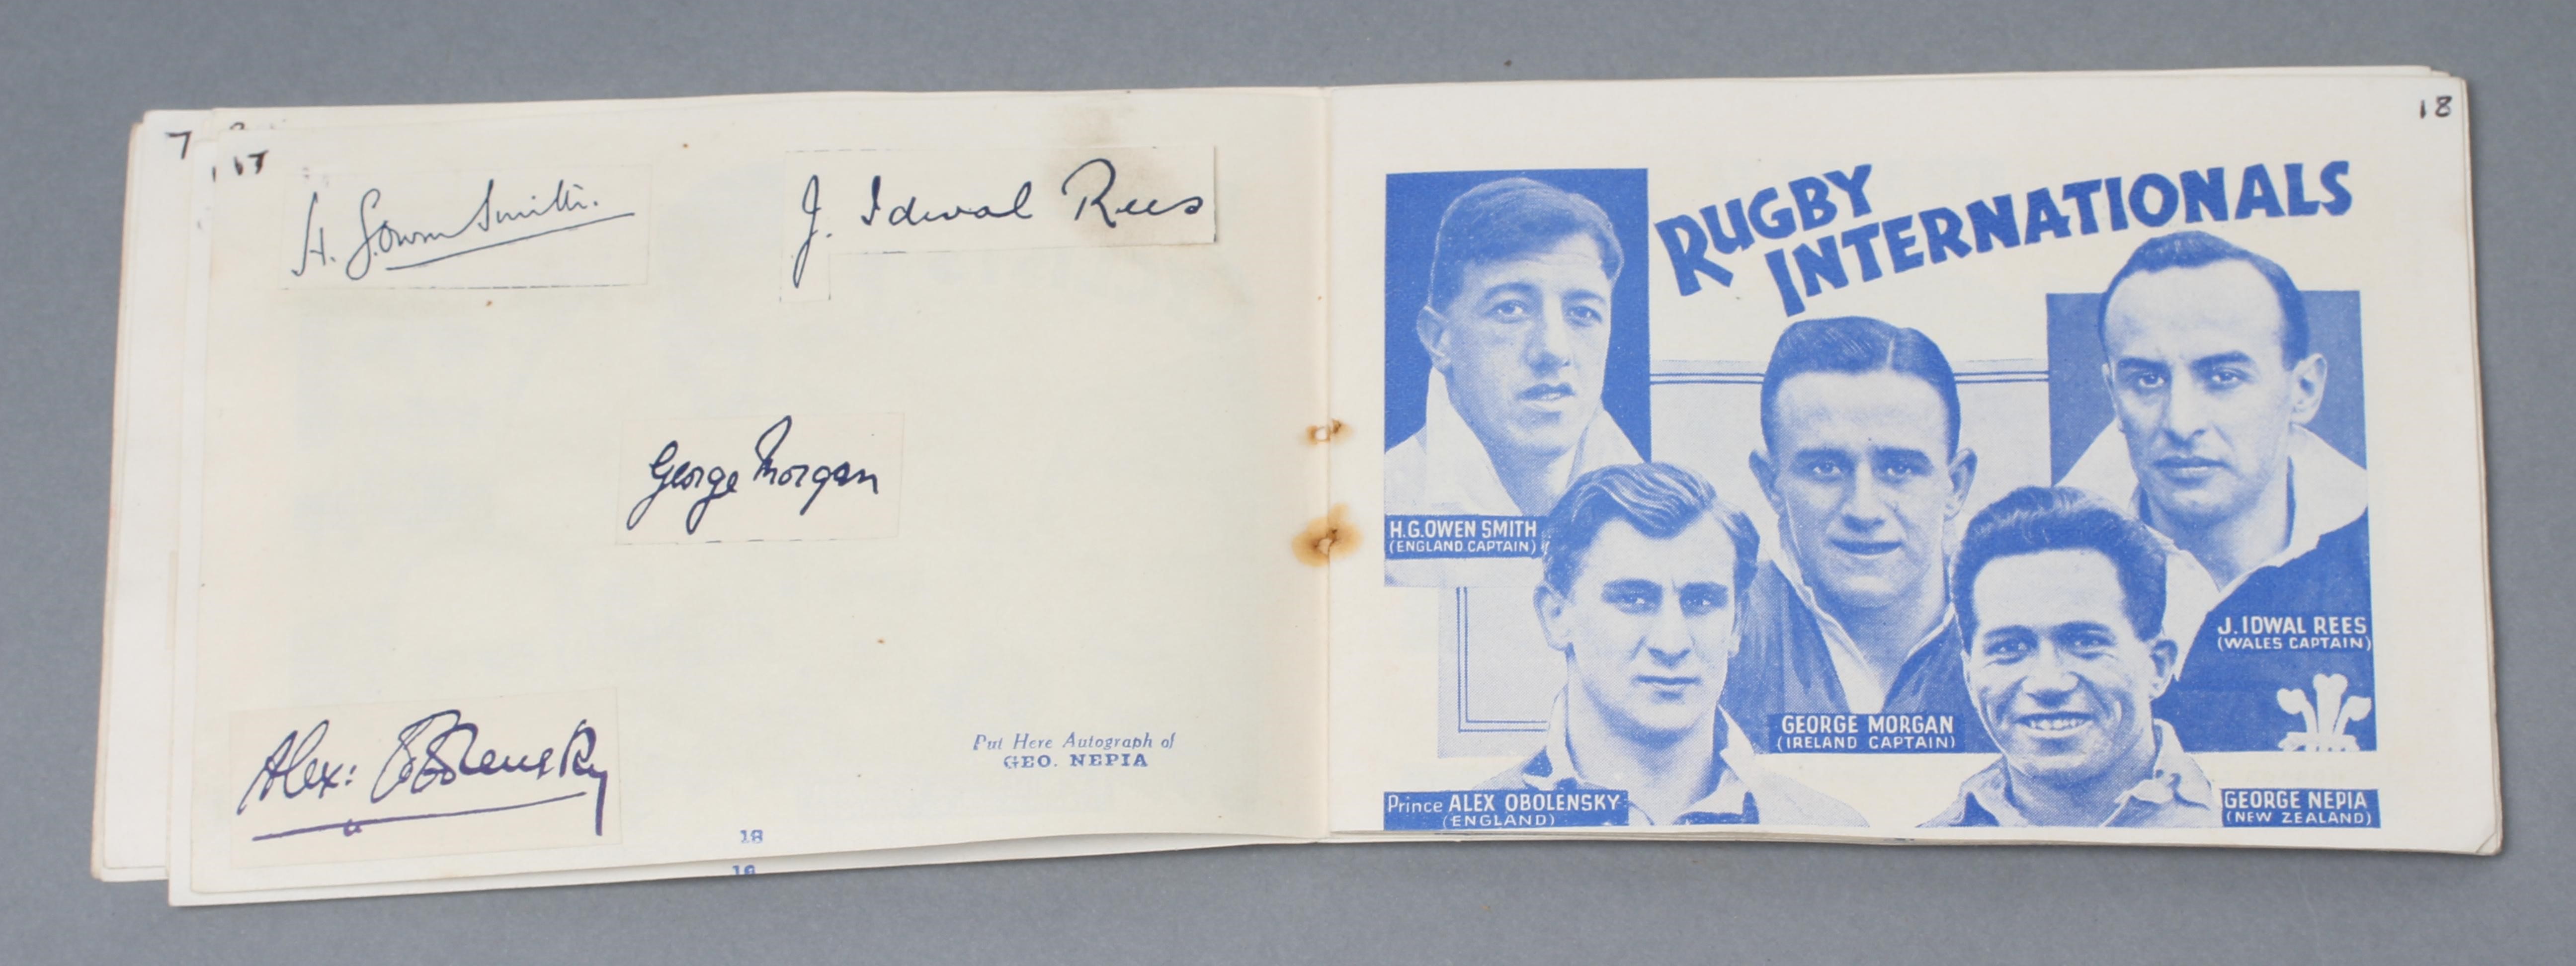 7
17
H. G. Owen Smith.
J. Idwal Rees
George Morgan
Alex: Obolensky
Put Here Autograph of
GEO. NEPIA
18
19
18
RUGBY
INTERNATIONALS
H.G. OWEN SMITH
(ENGLAND CAPTAIN)
J. IDWAL REES
(WALES CAPTAIN)
GEORGE MORGAN
(IRELAND CAPTAIN)
Prince ALEX OBOLENSKY
(ENGLAND)
GEORGE NEPIA
(NEW ZEALAND)